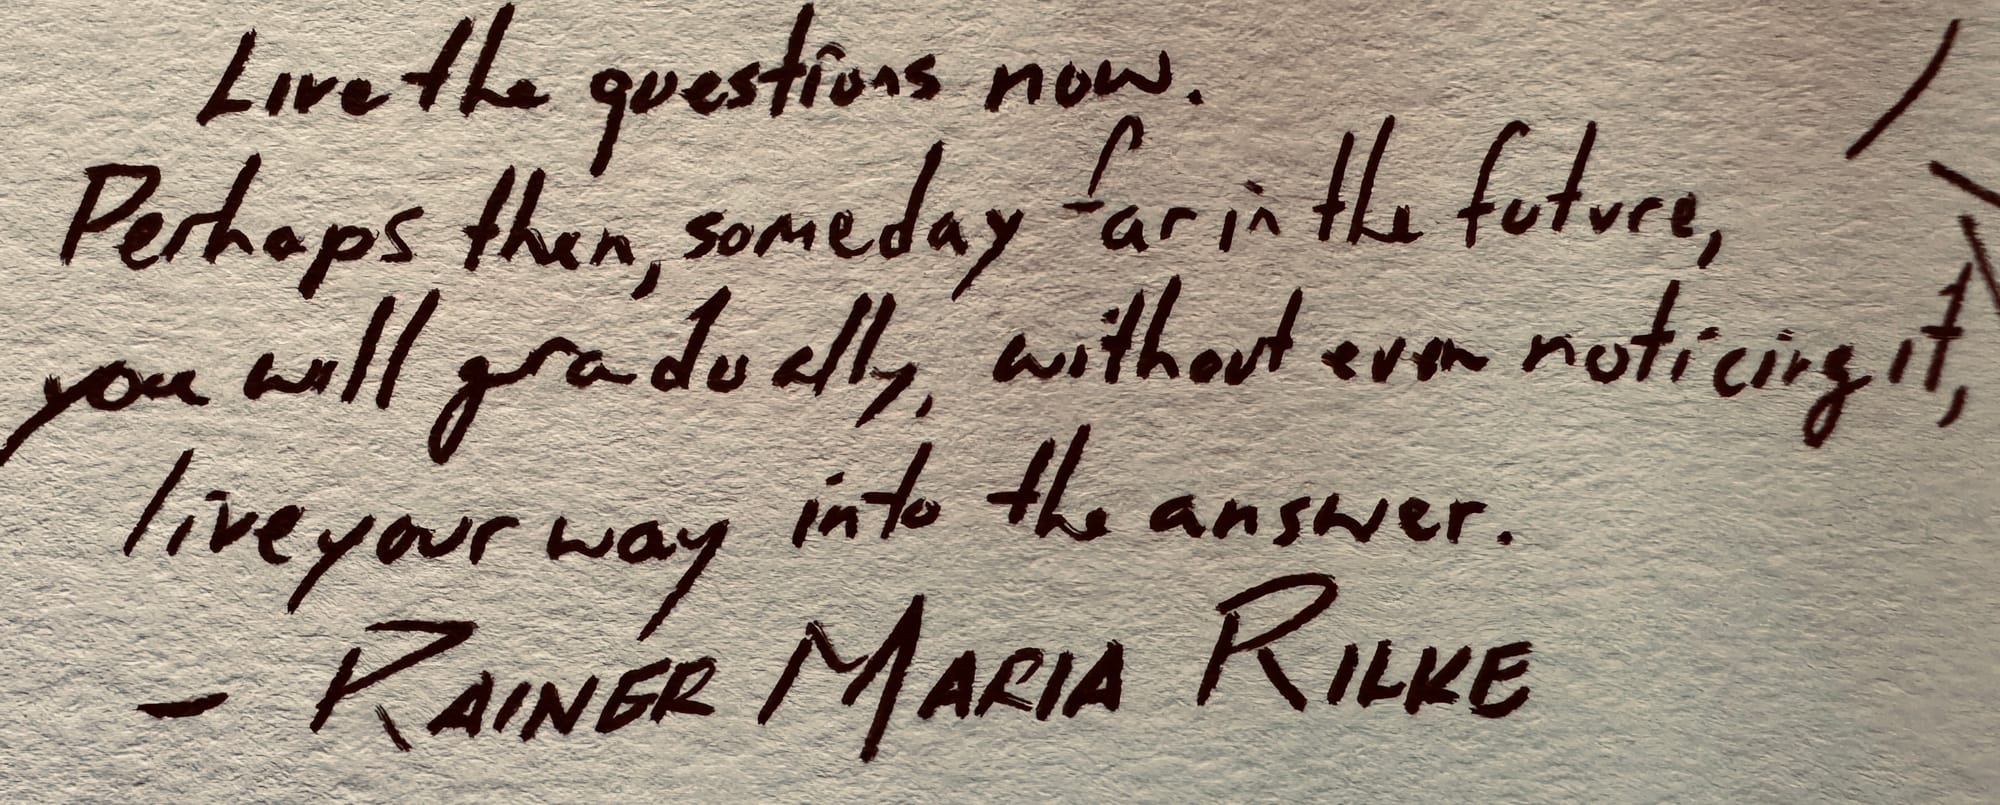 Live the questions now.
Perhaps then, someday far in the future,
you will gradually, without even noticing it,
live your way into the answer.
- RAINER MARIA RILKE